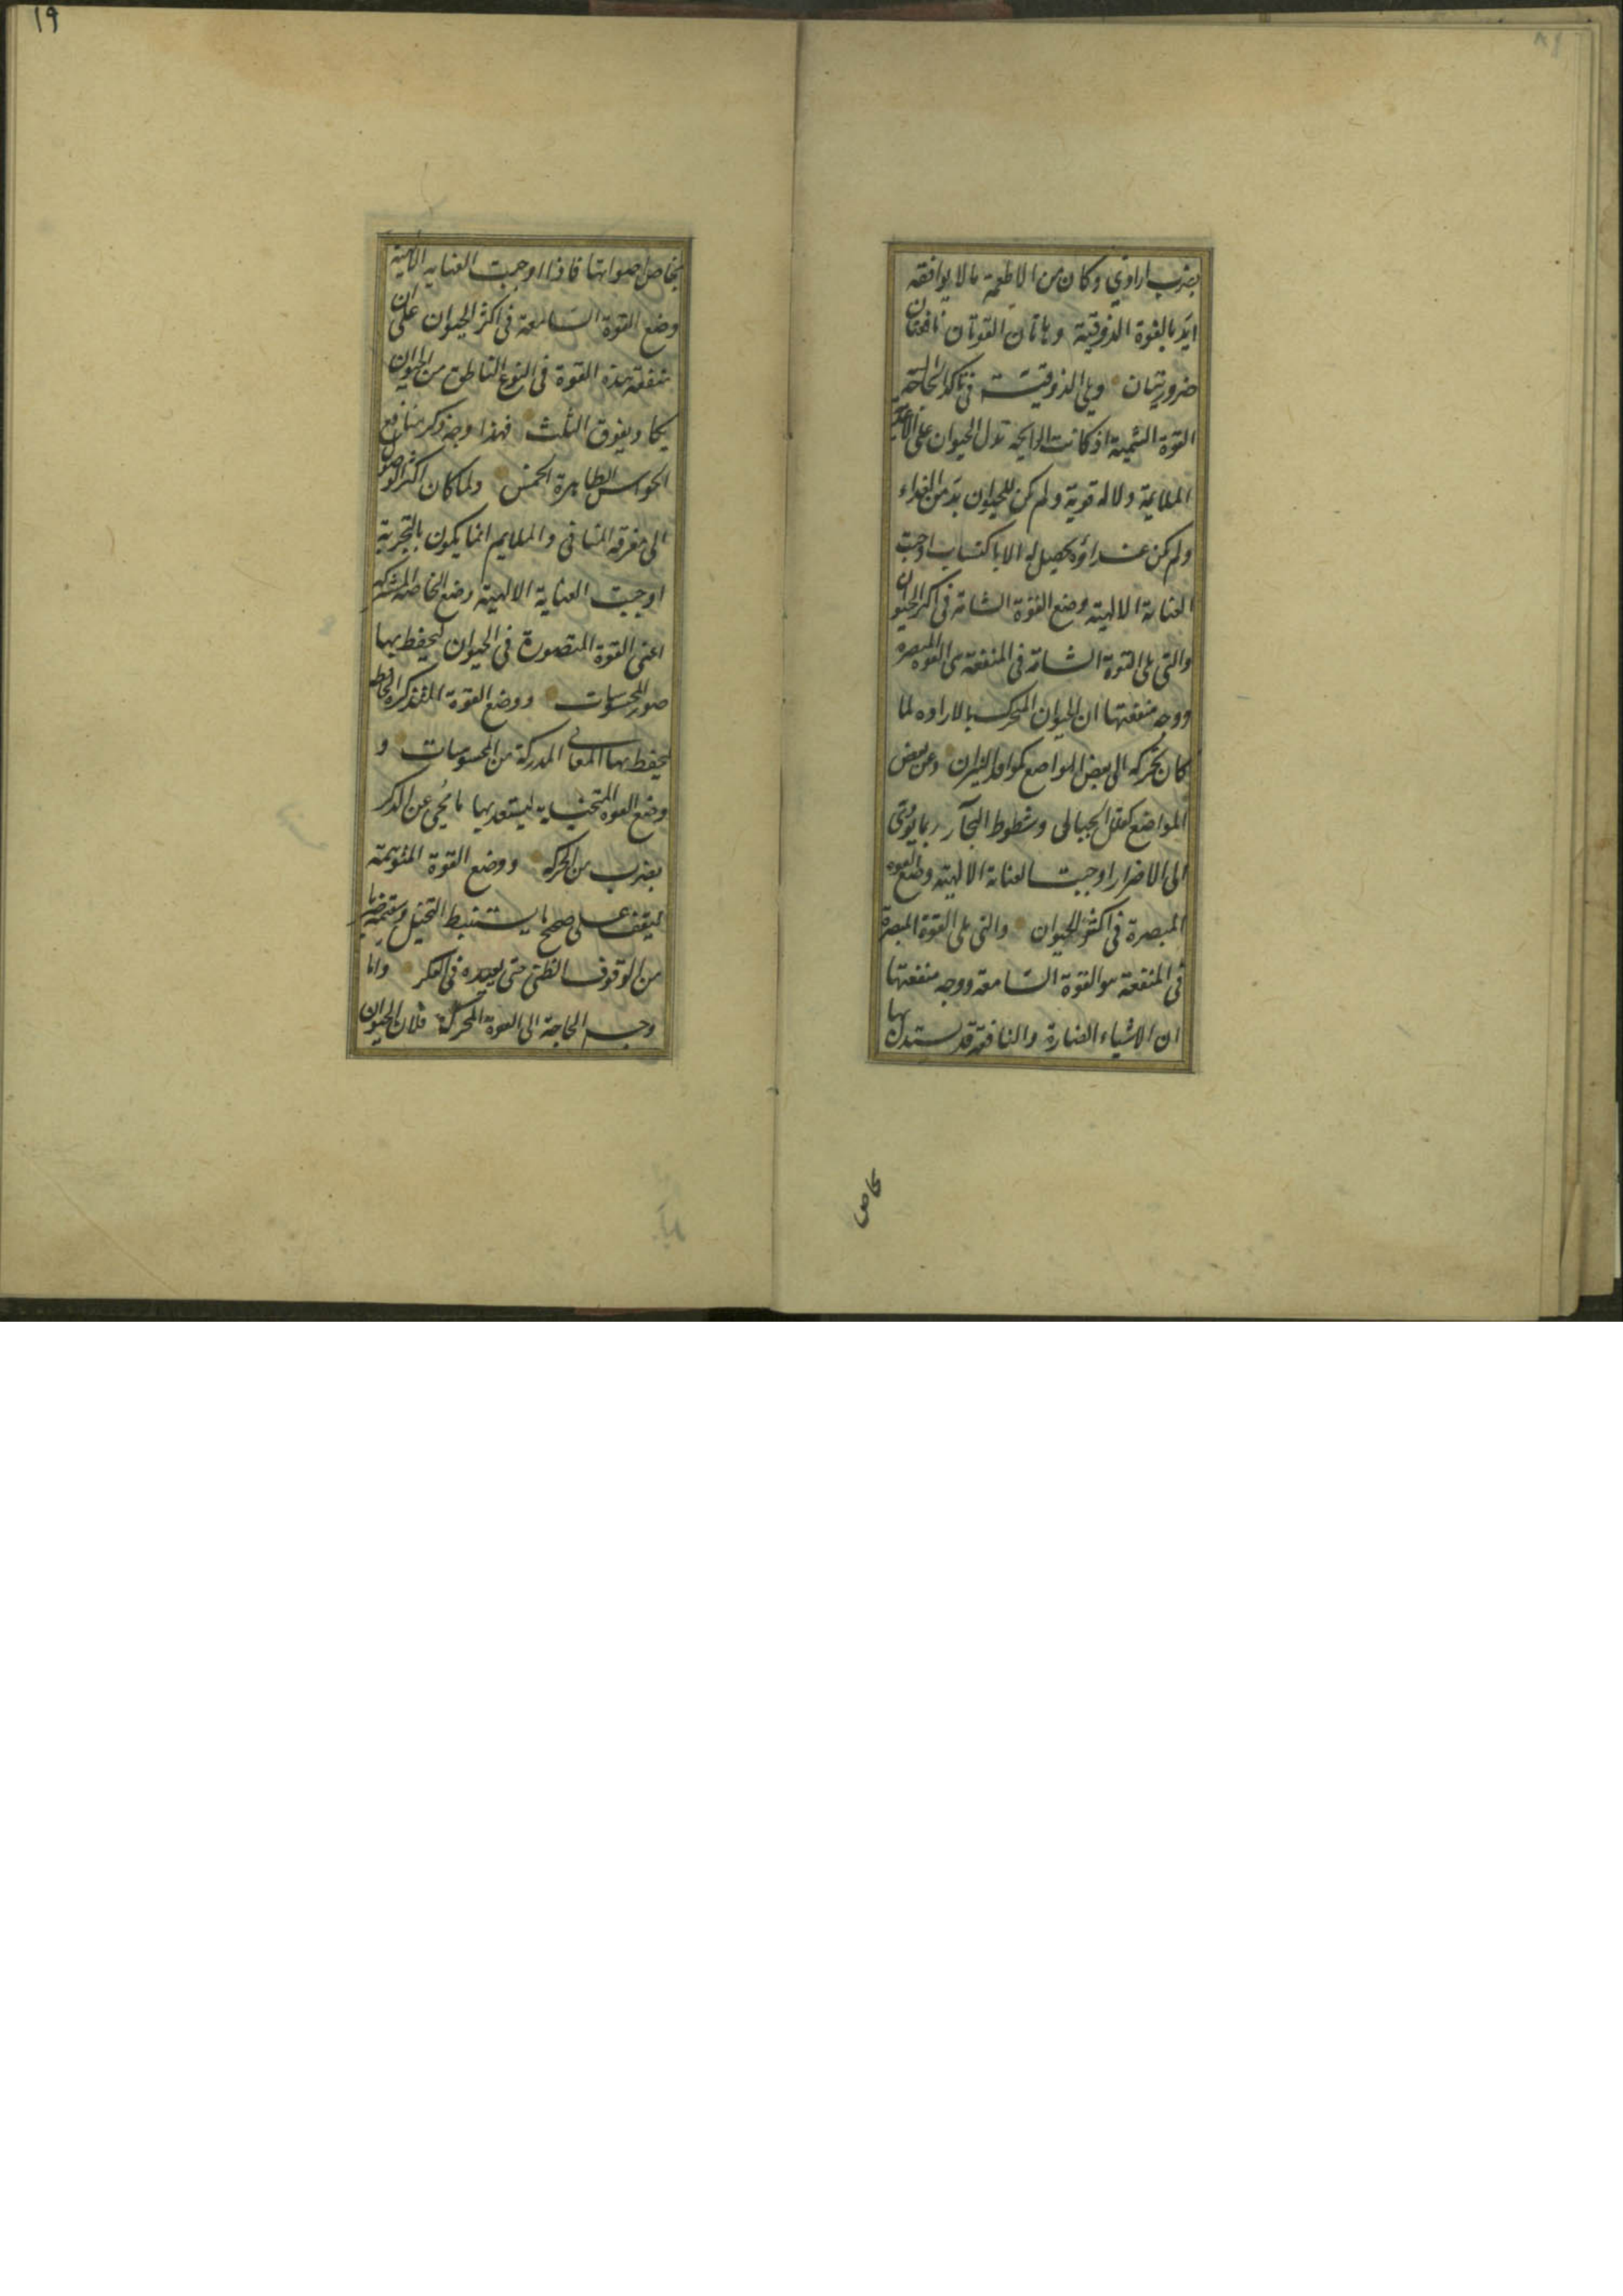 بضرب ارادي وكان من الاطعمة ما لا يوافقه
ايد بالقوة الذوقية وهاتان القوتان نافعتان
ضروريتان ويلي الذوقية في تاكد الحاجة اليه
القوة الشمية اذ كانت الرايحة تدل الحيوان على الاغذية
الملايمة دلالة قوية ولم يكن للحيوان بد من الغذاء
ولم يكن غذاؤه يحصل له الا باكتساب اوجبت
العناية الالهية وضع القوة الشامة في اكثر الحيوان
والتي يلي القوة الشامة في المنفعة هي القوة المبصرة
ووجه منفعتها ان الحيوان المتحرك بالارادة لما
كان تحركه الى بعض المواضع كمواقد النيران وعن بعض
المواضع كقلل الجبال وشطوط البحار ربما يؤدي
الى الاضرار اوجبت العناية الالهية وضع القوة
المبصرة في اكثر الحيوان والتي يلي القوة المبصرة
في المنفعة هو القوة السامعة ووجه منفعتها
ان الاشياء الضارة والنافعة قد يستدل بها
بخاص
١٩
بخاص اصواتها فاذا اوجبت العناية الالهية
وضع القوة السامعة في اكثر الحيوان على ان
منفعة هذه القوة في النوع الناطق من الحيوان
يكاد يفوق الثلث فهذا وجه ذكر منافع
الحواس الظاهرة الخمس ولما كان اكثر الوصول
الى معرفة المنافي والملايم انما يكون بالتجربة
اوجبت العناية الالهية وضع الحاسة المشتركة
اعني القوة المتصورة في الحيوان ليحفظ بها
صور المحسوسات ووضع القوة المتذكرة الحافظة
ليحفظ بها المعاني المدركة من المحسوسات و
وضع القوة المتخيلة ليستعيد بها ما يمحى عن الذكر
بضرب من الحركة ووضع القوة المتوهمة
ليقف على صحيح ما يستنبط التخيل وسقيمه ضربا
من الوقوف الظني حتى يعيده في الفكر واما
وجه الحاجة الى القوة المحركة فلان الحيوان